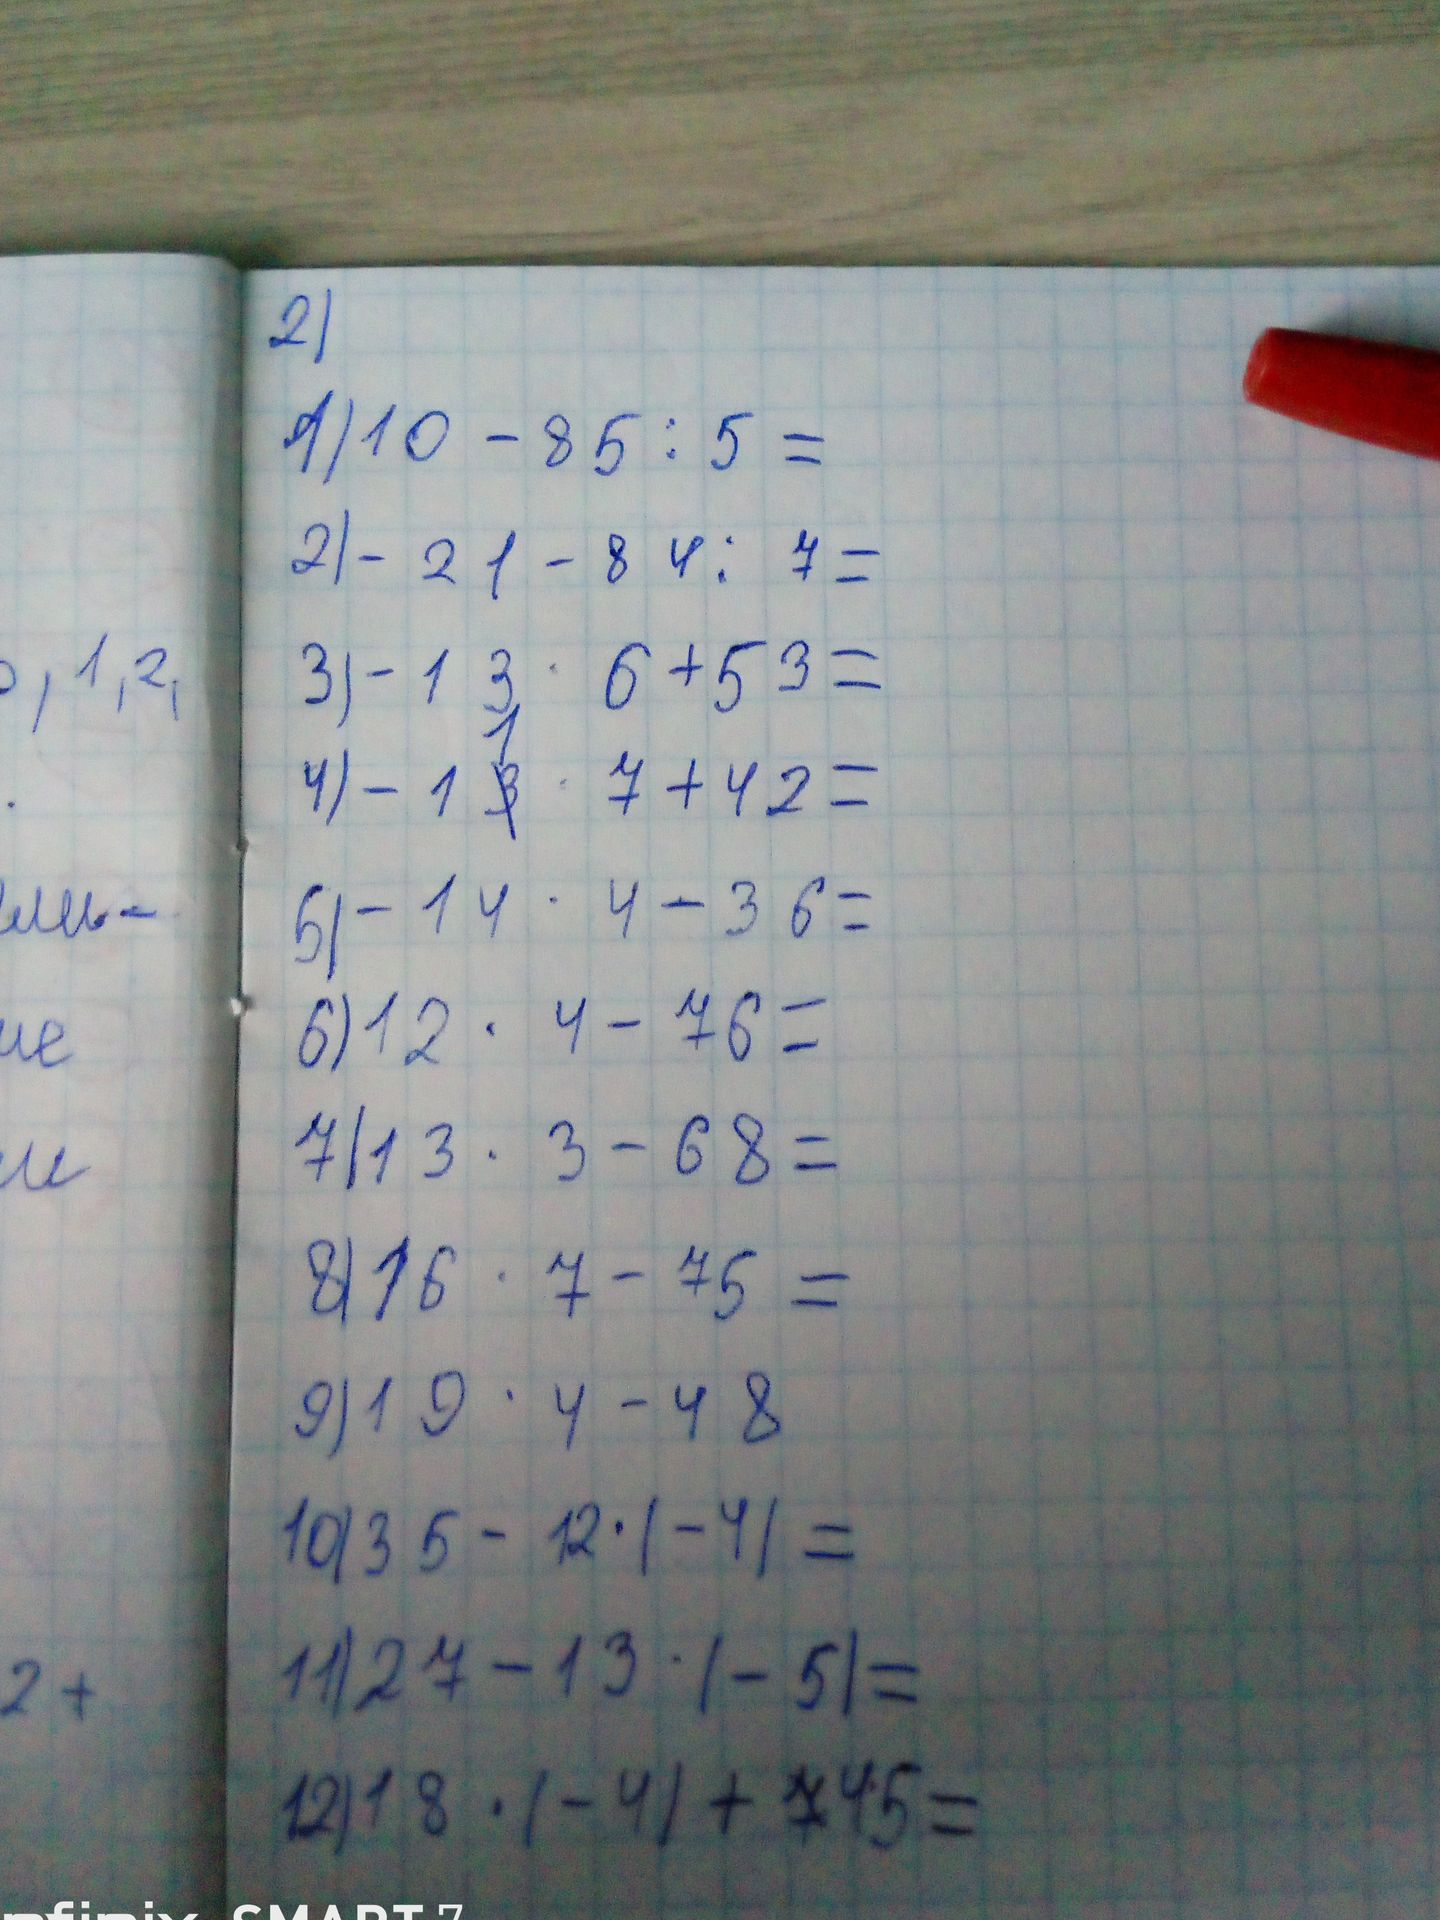 2)
1) 10 - 85 : 5 =
2) - 21 - 84 : 7 =
3) - 13 · 6 + 53 =
4) - 11 · 7 + 42 =
5) - 14 · 4 - 36 =
6) 12 · 4 - 76 =
7) 13 · 3 - 68 =
8) 16 · 7 - 75 =
9) 19 · 4 - 48
10) 35 - 12 · (-4) =
11) 27 - 13 · (-5) =
12) 18 · (-4) + 745 =
, 1, 2,
2 +
SMART 7